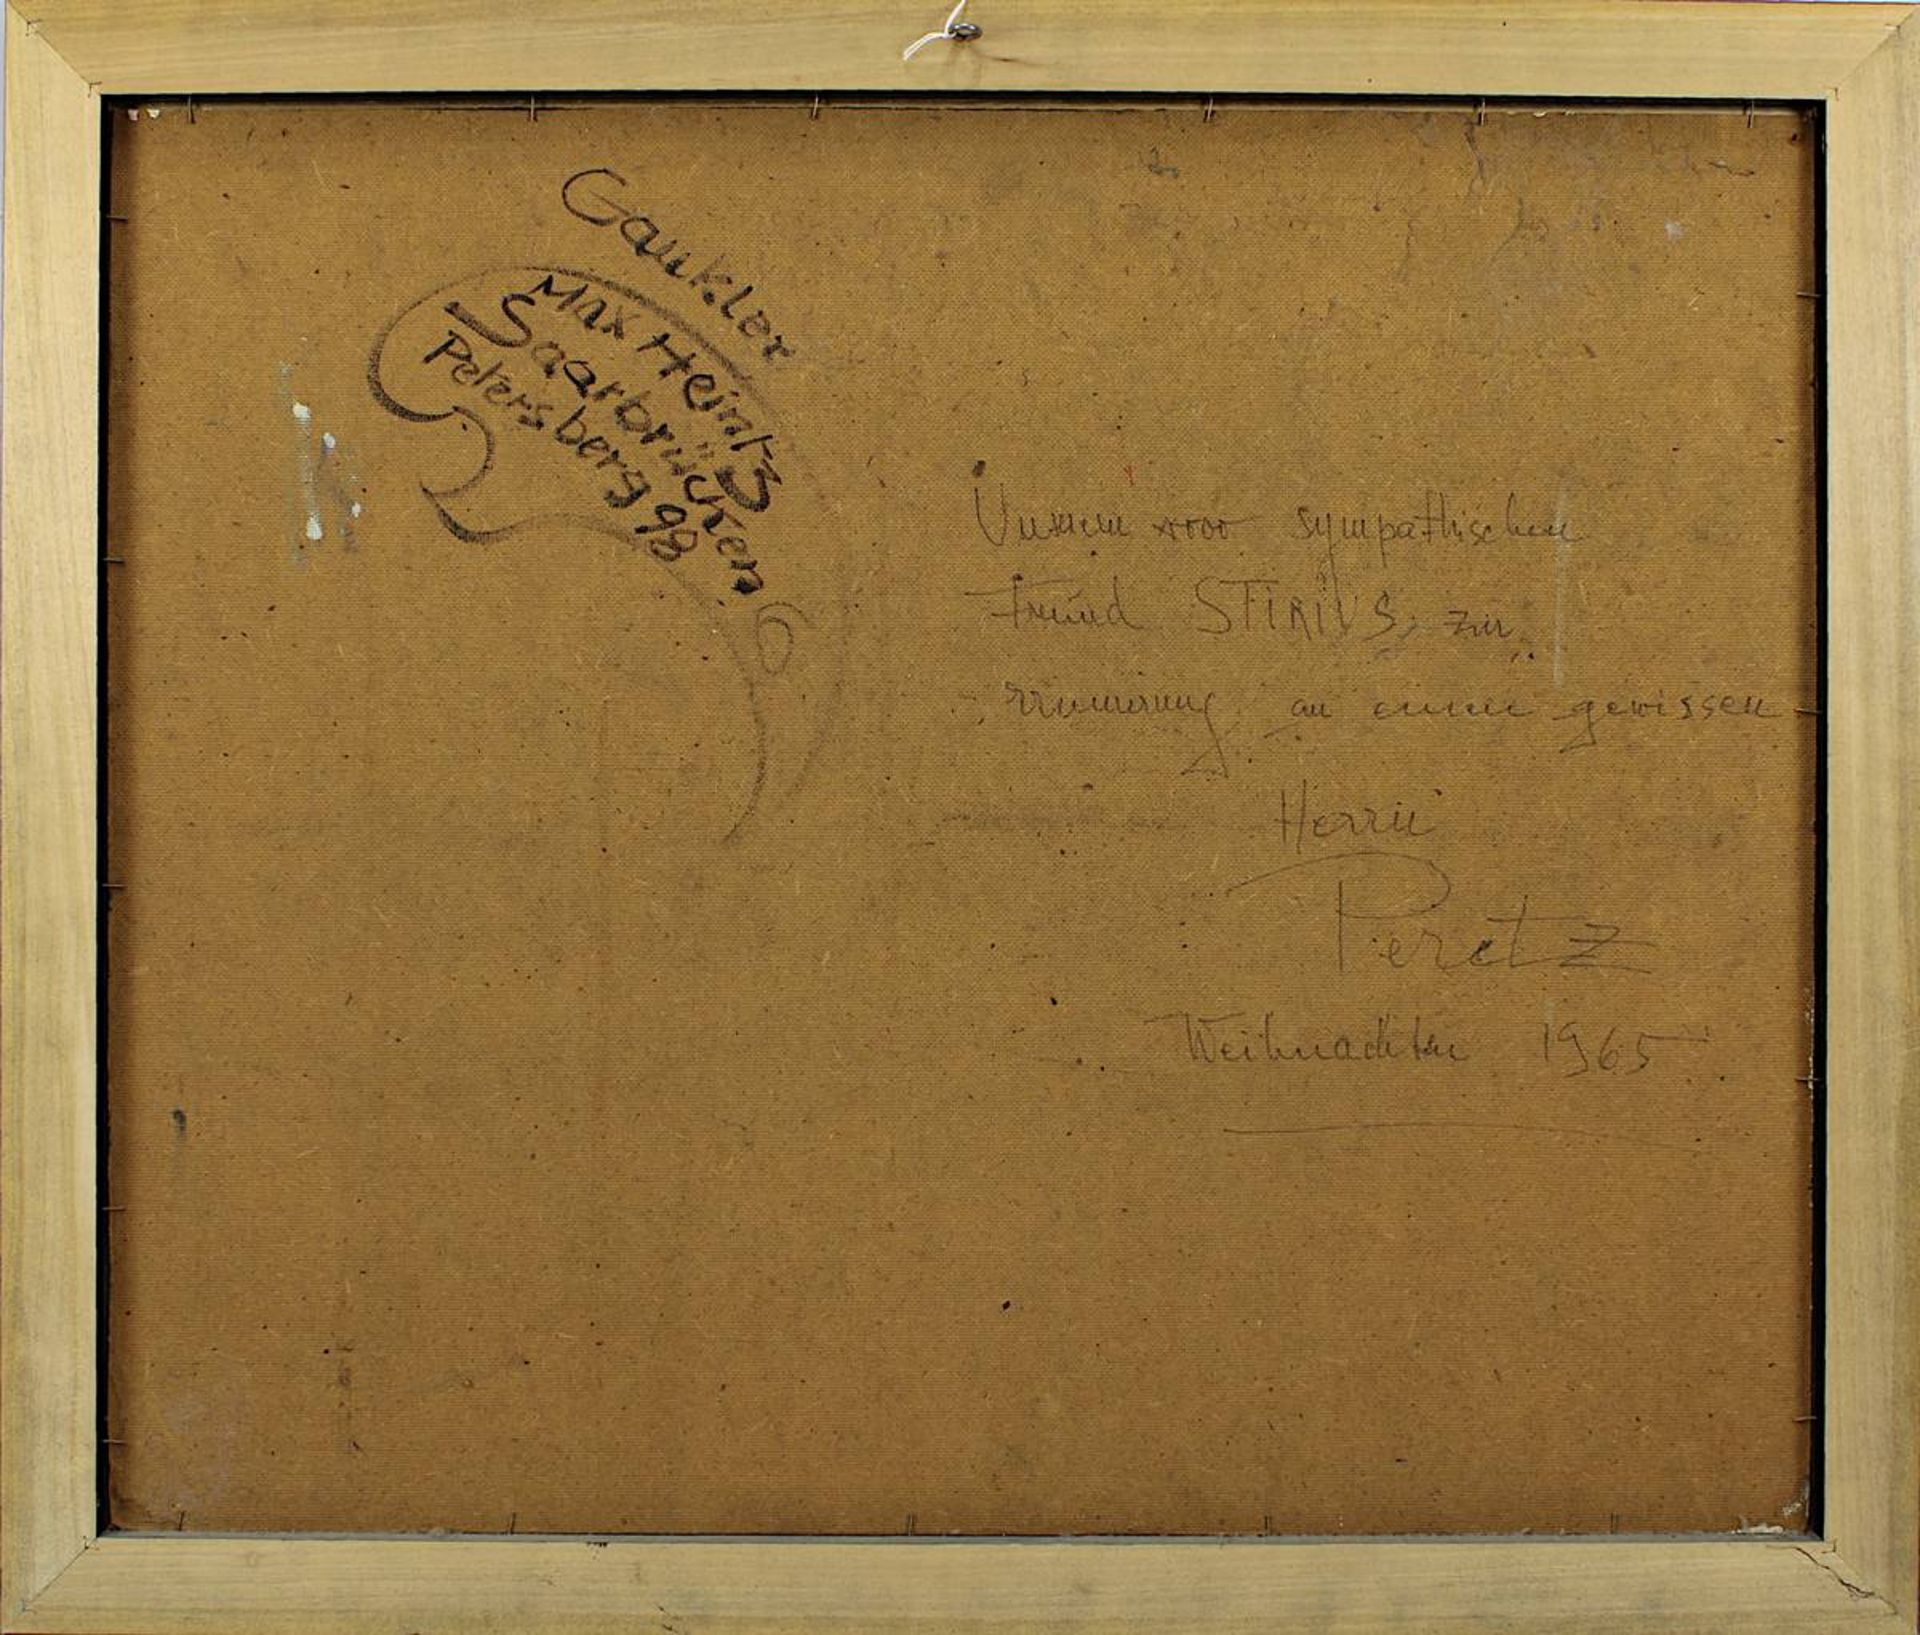 Gaukler
MAX Heintz
Saarbrücken
Petersberg 98
Unserem sympathischen
Freund STIRIUS, zur
Erinnerung an einen gewissen
Herrn
Peretz
Weihnachten 1965